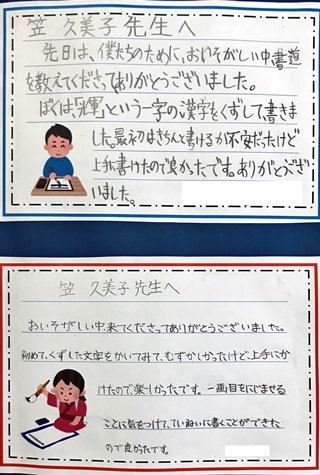 笠 久美子先生へ
先日は、僕たちのために、おいそがしい中書道
を教えてくださってありがとうございました。
ぼくは「運」という一字の漢字をくずして書きま
した。最初はきちんと書けるか不安だったけど
上手書けたので良かったです。ありがとうござ
いました。
笠 久美子先生へ
おいそがしい中来てくださってありがとうございました。
初めて、くずした文字をかいてみて、むずかしかったけど、上手にか
けたので楽しかったです。一画目をにじませる
ことに気をつけて、ていねいに書くことができた
ので良かったです。